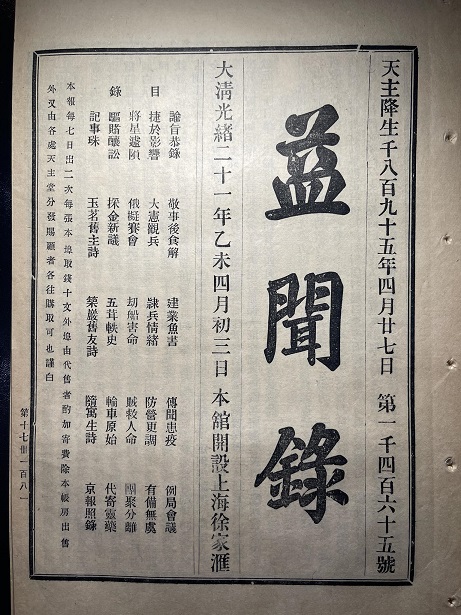 天主降生千八百九十五年四月廿七日 第一千四百六十五號
益聞錄
大清光緒二十一年乙未四月初三日 本館開設上海徐家滙
諭旨恭錄 敬事後食解 建業魚書 傳聞患疫 例局會議
目 捷於影響 大憲觀兵 隷兵情緒 防營更調 有備無虞
將星遽隕 俄艇賽會 刼船害命 人命 團聚分離
錄 驅賭釀訟 採金新議 五茸軼史 輪車原始 代寄靈藥
記事珠 玉茗舊主詩 舊友詩 隨寓生詩 京報照錄
本報每七日出二次每張本埠取錢十文外埠由代售者酌加寄費除本帳房出售
外又由各處天主堂分發賜顧者各往購取可也謹白
第十七冊一百八一